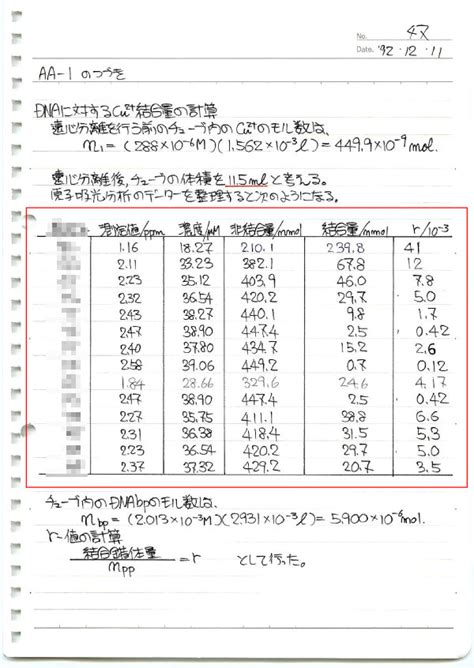 No. 47
Date. '92・12・11
AA-1 のつづき
DNAに対するCu²⁺結合量の計算
遠心分離を行う前のチューブ内のCu²⁺のモル数は、
n₁ = (288×10⁻⁶M)(1.562×10⁻³l) = 449.9×10⁻⁹mol.
遠心分離後、チューブの体積を11.5mlと考える。
原子吸光分析のデーターを整理すると次のようになる。
測定値/ppm 濃度/μM 非結合量/mmol 結合量/mmol r/10⁻³
1.16 18.27 210.1 239.8 41
2.11 33.23 382.1 67.8 12
2.23 35.12 403.9 46.0 7.8
2.32 36.54 420.2 29.7 5.0
2.43 38.27 440.1 9.8 1.7
2.47 38.90 447.4 2.5 0.42
2.40 37.80 434.7 15.2 2.6
2.58 39.06 449.2 0.7 0.12
1.84 28.66 329.6 24.6 4.17
2.47 38.90 447.4 2.5 0.42
2.27 35.75 411.1 38.8 6.6
2.31 36.38 418.4 31.5 5.3
2.23 36.54 420.2 29.7 5.0
2.37 37.32 429.2 20.7 3.5
チューブ内のDNAbpのモル数は、
n_bp = (2.013×10⁻³M)(2.931×10⁻³l) = 5.900×10⁻⁶mol.
r-値の計算
結合錯体量/n_pp = r として行った。